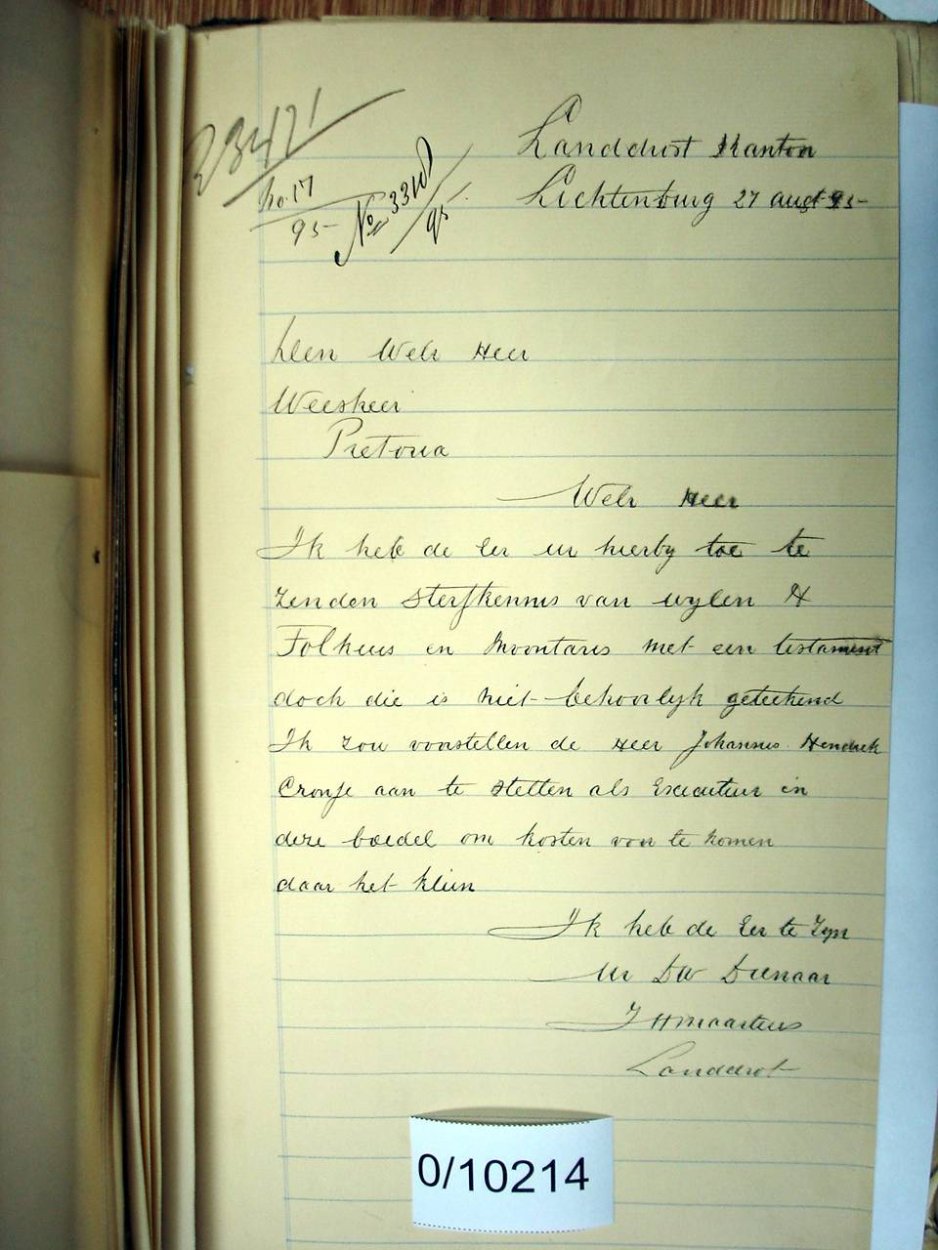 23421
No. 17
95
No 3310
95
Landdrost Kantoor
Lichtenburg 27 augt 95
Den Weln Heer
Weesheer
Pretoria
Weln Heer
Ik heb de Eer in hierby toe te
zenden sterfkennis van wylen H
Folkeus en Inventaris met een testament
doch die is niet behoorlyk geteekend
Ik zou voorstellen de Heer Johannes Hendrik
Cronje aan te stellen als Executeur in
deze boedel om kosten voor te komen
daar het klein
Ik heb de Eer te Zyn
Ur DW Dienaar
Landdrost
0/10214